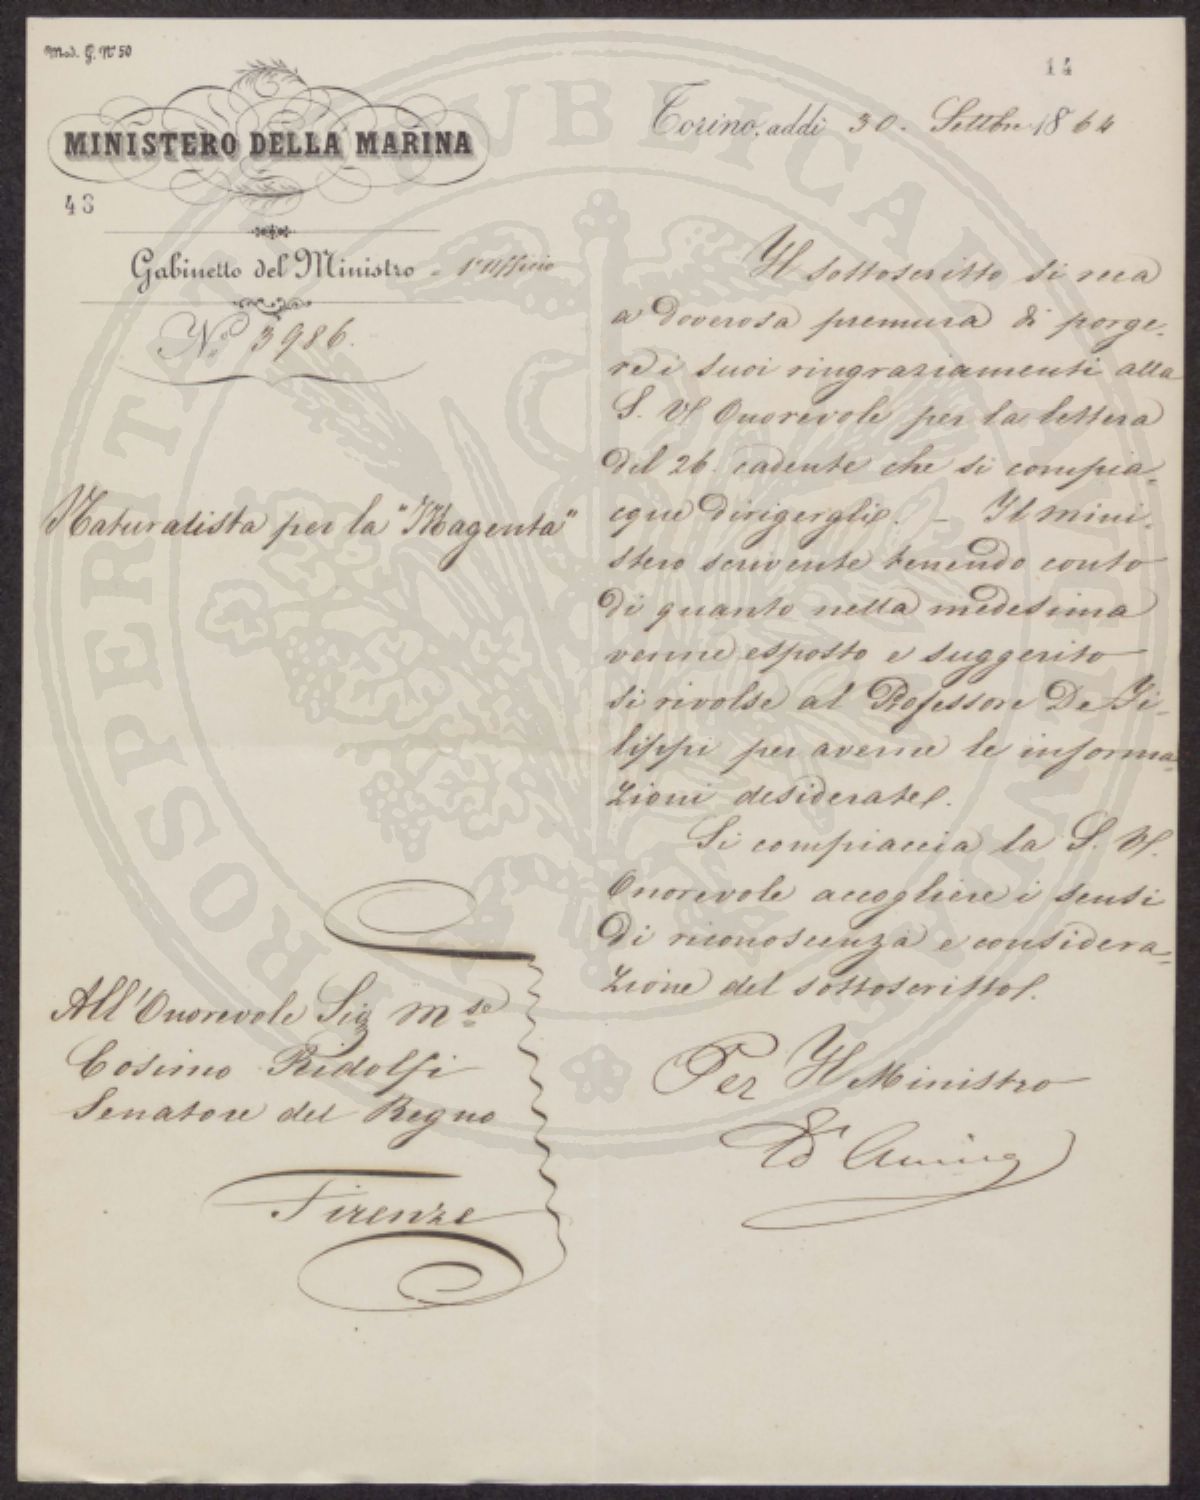 Mod. G. N° 50
14
MINISTERO DELLA MARINA
Torino, addì 30. Settbre 1864
43
Gabinetto del Ministro - 1° Ufficio
N.° 3986.
Naturalista per la "Magenta"
Il sottoscritto si reca
a doverosa premura di porge-
re i suoi ringraziamenti alla
S. V. Onorevole per la lettera
del 26. cadente che si compia-
cque dirigergli. - Il mini-
stero scrivente tenendo conto
di quanto nella medesima
venne esposto e suggerito
si rivolse al Professore De Fi-
lippi per averne le informa-
zioni desiderate.
Si compiaccia la S. V.
Onorevole accogliere i sensi
di riconoscenza e considera-
zione del sottoscritto.
Per Il Ministro
All'Onorevole Sig Mse
Cosimo Ridolfi
Senatore del Regno
Firenze
PROSPERITATI PUBLICAE